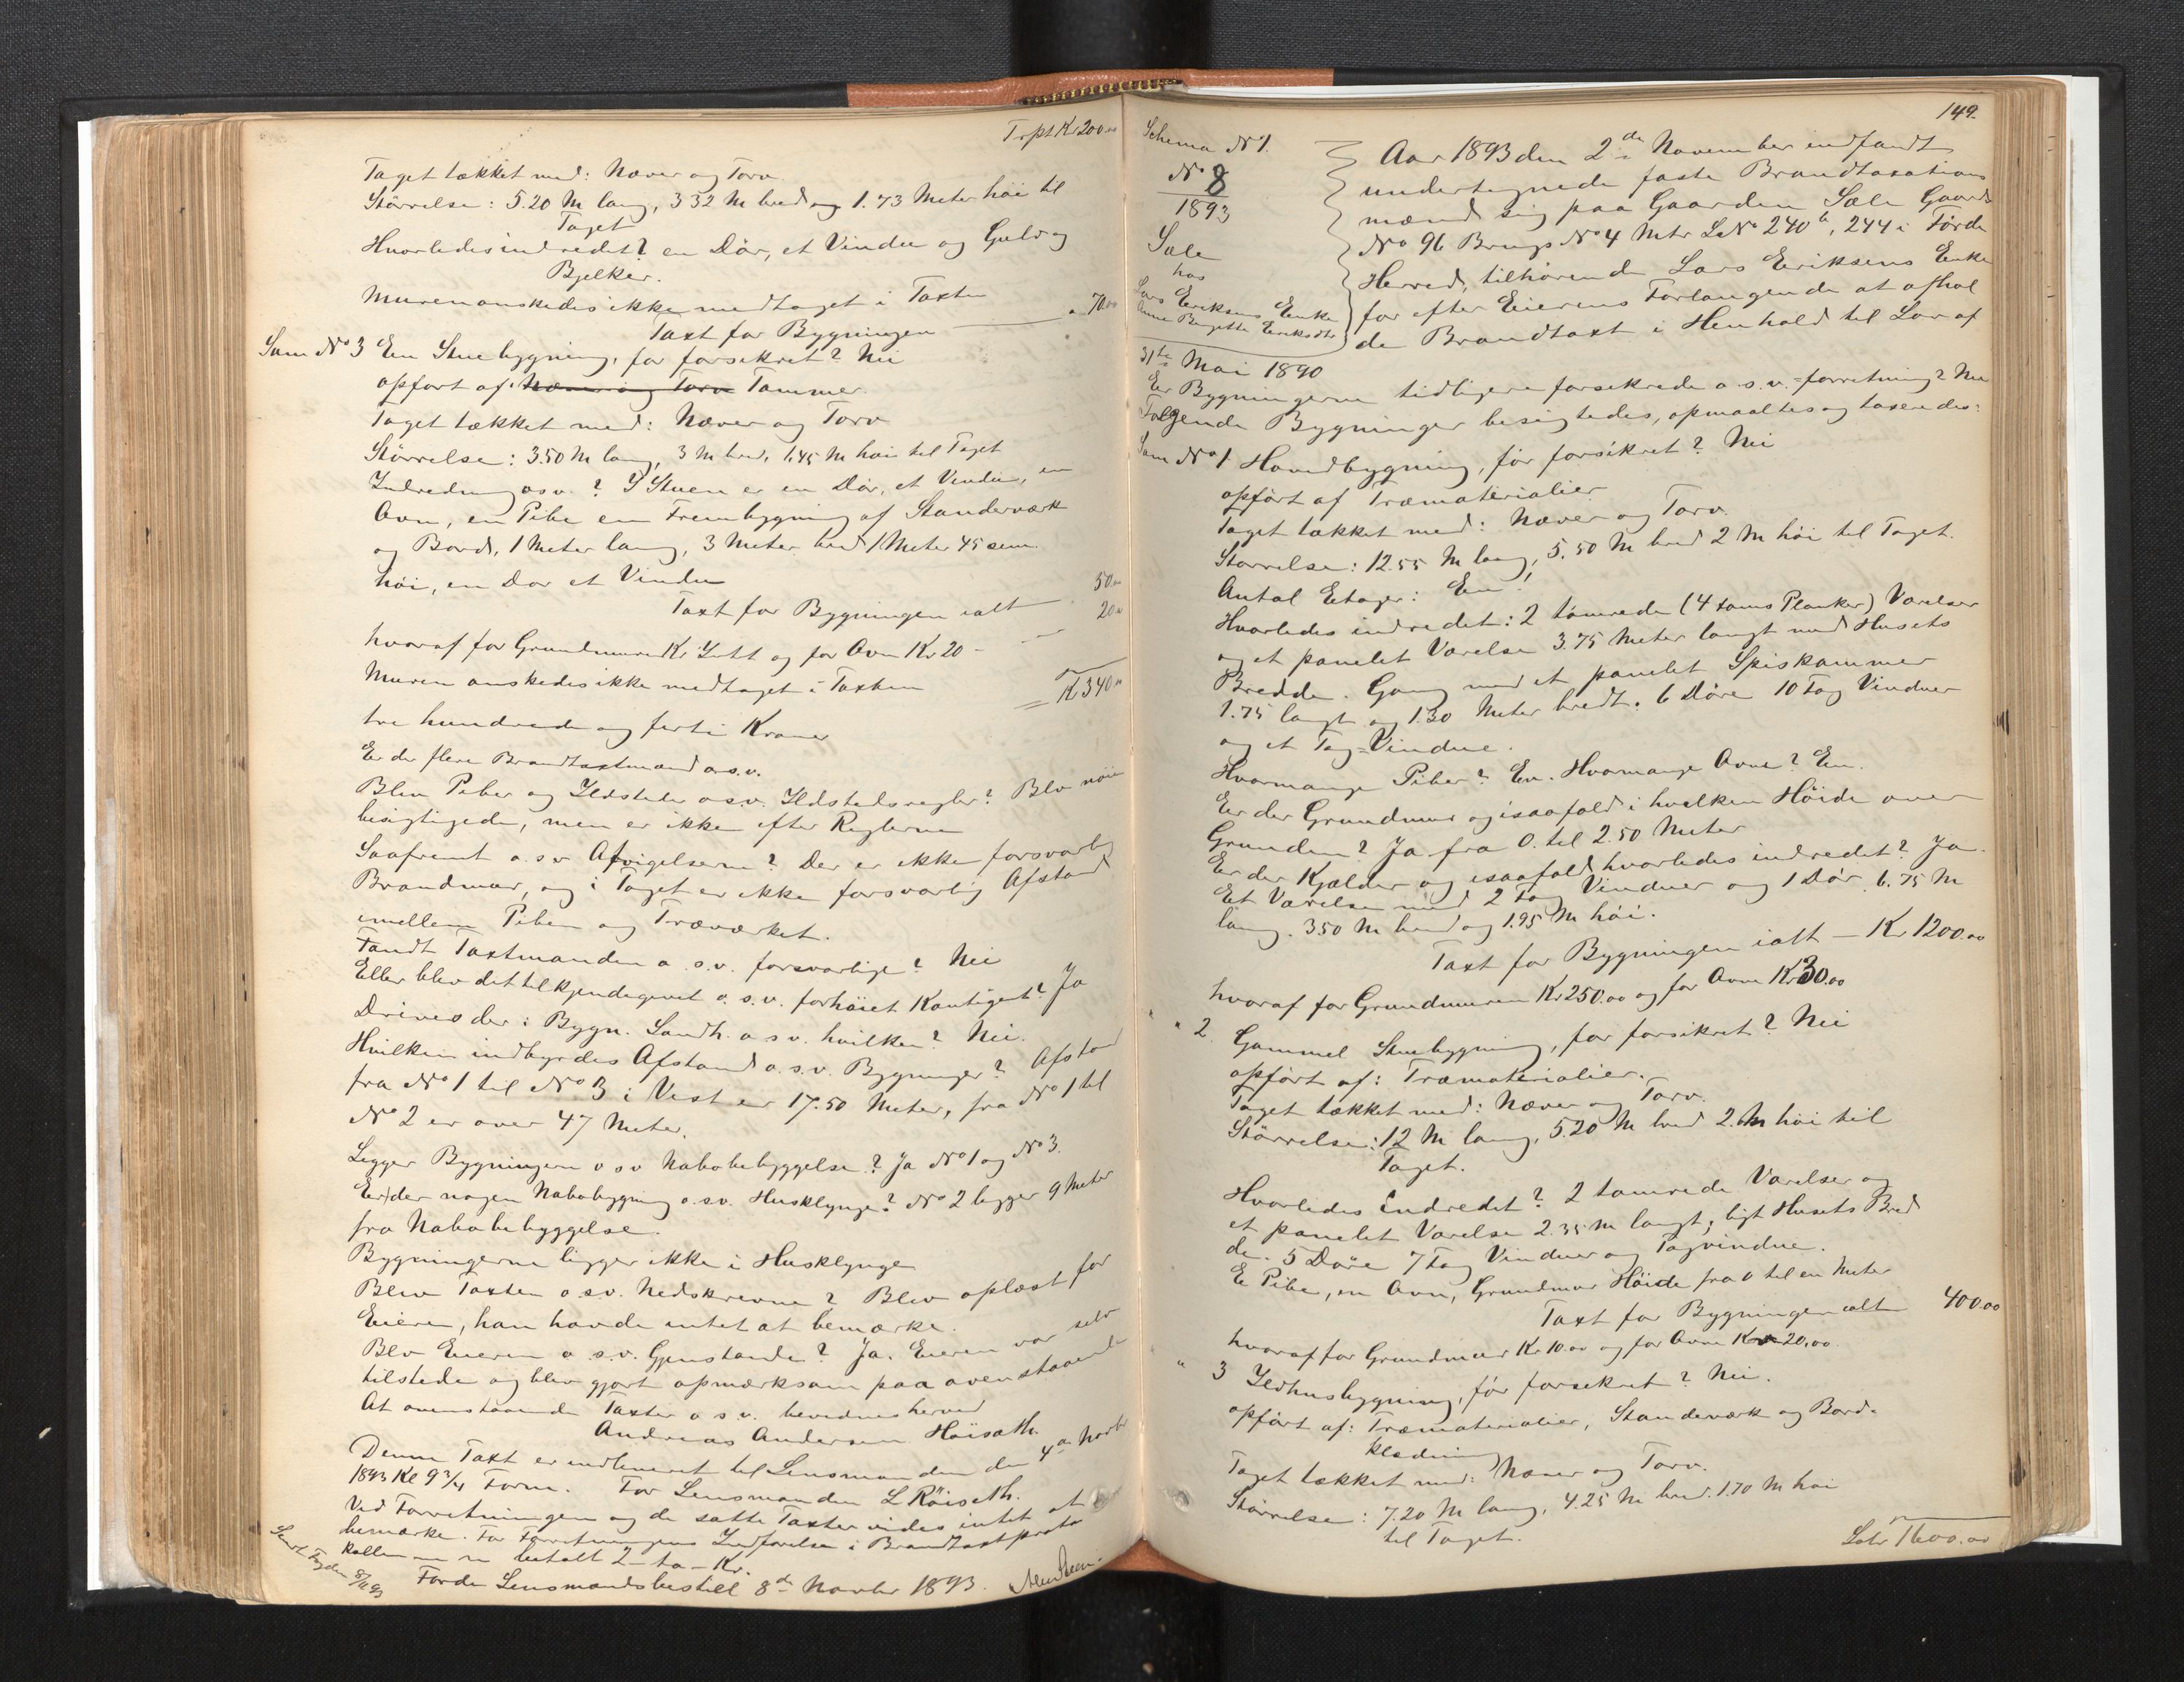 Trpt Kr 200.00
Taget tækket med: Næver og Torv.
Störrelse: 5.20 M lang, 3 32 M bred og 1.73 Meter höi til
Taget
Hvorledes indredet? en Dör, et Vindu og Gulv og
Bjelker.
Muren önskedes ikke medtaget i Taxten
Taxt for Bygningen " 70.00
Sum No 3 En Stuebygning, før forsikret? Nei
opført af: Næver og Torv Tømmer.
Taget tækket med: Næver og Torv
Störrelse: 3.50 M lang, 3 M bred, 1.45 M høi til Taget
Indredning o s v.? I Stuen er en Dör, et Vindu, en
Ovn, en Pibe en Frembygning af Standerværk
og Bord, 1 Meter lang, 3 Meter bred 1 Meter 45 cem.
höi, en Dør et Vindu
Taxt for Bygningen ialt 50.00
hvoraf for Grundmuren Kr Intet og for Ovn Kr 20 - 20.00
Muren önskedes ikke medtaget i Taxten Kr 340.00
tre hundrede og førti Kroner
Er der flere Brandtaxtmænd o.s.v.
Blev Piber og Ildsteder o.s.v. Ildstedsregler? Blev nöie
besigtigede, men er ikke efter Reglerne
Saafremt o.s.v Afvigelserne? Der er ikke forsvarlig
Brandmur, og i Taget er ikke forsvarlig Afstand
imellem Piben og Træværket.
Fandt Taxtmændene o.s.v. forsvarlige? Nei
Eller blev det tilkjendegivet o.s.v. forhöiet Kontigent? Ja
Drives der i Bygn. Landh. o s v. hvilken? Nei.
Hvilken indbyrdes Afstand o.s.v. Bygninger? Afstand
fra No 1 til No 3 i Vest er 17.50 Meter, fra No 1 til
No 2 er over 47 Meter.
Ligger Bygningerne o s v Nabobebyggelse? Ja No 1 og No 3.
Er der nogen Nabobygning o.s.v. Husklynge? No 2 ligger 9 Meter
fra Nabobebyggelse.
Bygningerne ligger ikke i Husklynge
Blev Taxten o.s.v. Nedskrevne? Blev oplæst for
Eieren, han havde intet at bemærke.
Blev Eieren o.s.v. Gjenstande? Ja. Eieren var selv
tilstede og blev gjort opmærksom paa ovenstaaende
At ovenstaaende Taxter o s v. bevidnes herved
Andreas Andersen Höisæth.
Denne Taxt er indleveret til Lensmanden den 4de Novbr
1893 Kl 9 3/4 Form. For Lensmanden L Röiseth.
Ved Forretningen og de satte Taxter vides intet at
bemærke. For Forretningens Indførelse i Brandtaxtproto
kollen er betalt 2 - to - Kr.
Førde Lensmandsbestill 8de Novbr 1893.
Sendt Fogden 8/11 93
149.
Schema No 1.
No 8
1893
Sæle
hos
Lars Eriksens Enke
Anne Birgitte Eriksdtr
Aar 1893 den 2den November indfandt
undertegnede faste Brandtaxations
mænd sig paa Gaarden Sæle Gaards
No 96 Brugs No 4 Mtr LNo 240b, 244 i Førde
Herred, tilhørende Lars Eriksens Enke
for efter Eierens Forlangende at afhol
de Brandtaxt i Henhold til Lov af
31te Mai 1890
Er Bygningerne tidligere forsikrede o.s.v. forretning? Nei
Følgende Bygninger besigtedes, opmaaltes og taxeredes:
Sum No 1 Hovedbygning, før forsikret? Nei
opført af Træmaterialier
Taget tækket med: Næver og Torv.
Størrelse: 12.55 M lang, 5.50 M bred 2 M höi til Taget.
Antal Etager: En!
Hvorledes indredet: 2 tömrede (4 toms Planker) Værelser
og et panelet Værelse 3.75 Meter langt med Husets
Bredde. Gang med et panelet Spiskammer
1.75 langt og 1.30 Meter bredt. 6 Döre 10 Fag Vinduer
og et Tag-Vindue.
Hvormange Piber? En. Hvormange Ovne? En.
Er der Grundmur og isaafald i hvilken Höide over
Grunden? Ja fra 0. til 2.50 Meter
Er der Kjælder og isaafald hvorledes indredet? Ja.
Et Værelse med 2 Fag Vinduer og 1 Dör, 6.75 M
lang. 350 M bred og 1.95 M höi.
Taxt for Bygningen ialt - Kr 1200.00
hvoraf for Grundmuren Kr 250.00 og for Ovne Kr 30.00
" " 2. Gammel Stuebygning, før forsikret? Nei
opført af: Træmaterialier.
Taget tækket med: Næver og Torv.
Störrelse: 12 M lang, 5.20 M bred 2. M höi til
Taget.
Hvorledes indredet? 2 tømrede Værelser og
et panelet Værelse 2.35 M langt, ligt Husets Bred
de. 5 Döre 7 Fag Vinduer og Tagvindue.
En Pibe, en Ovn, Grundmur Höide fra 0 til en Meter
Taxt for Bygningen ialt 400.00
hvoraf for Grundmur Kr 10.00 og for Ovne Kr 20.00.
" 3 Ildhusbygning, før forsikret? Nei.
opført af: Træmaterialier, Standeværk og Bord-
klædning
Taget tækket med: Næver og Torv.
Störrelse: 7.20 M lang, 4.25 M bred. 1.70 M höi
til Taget.
Latr 1600.00